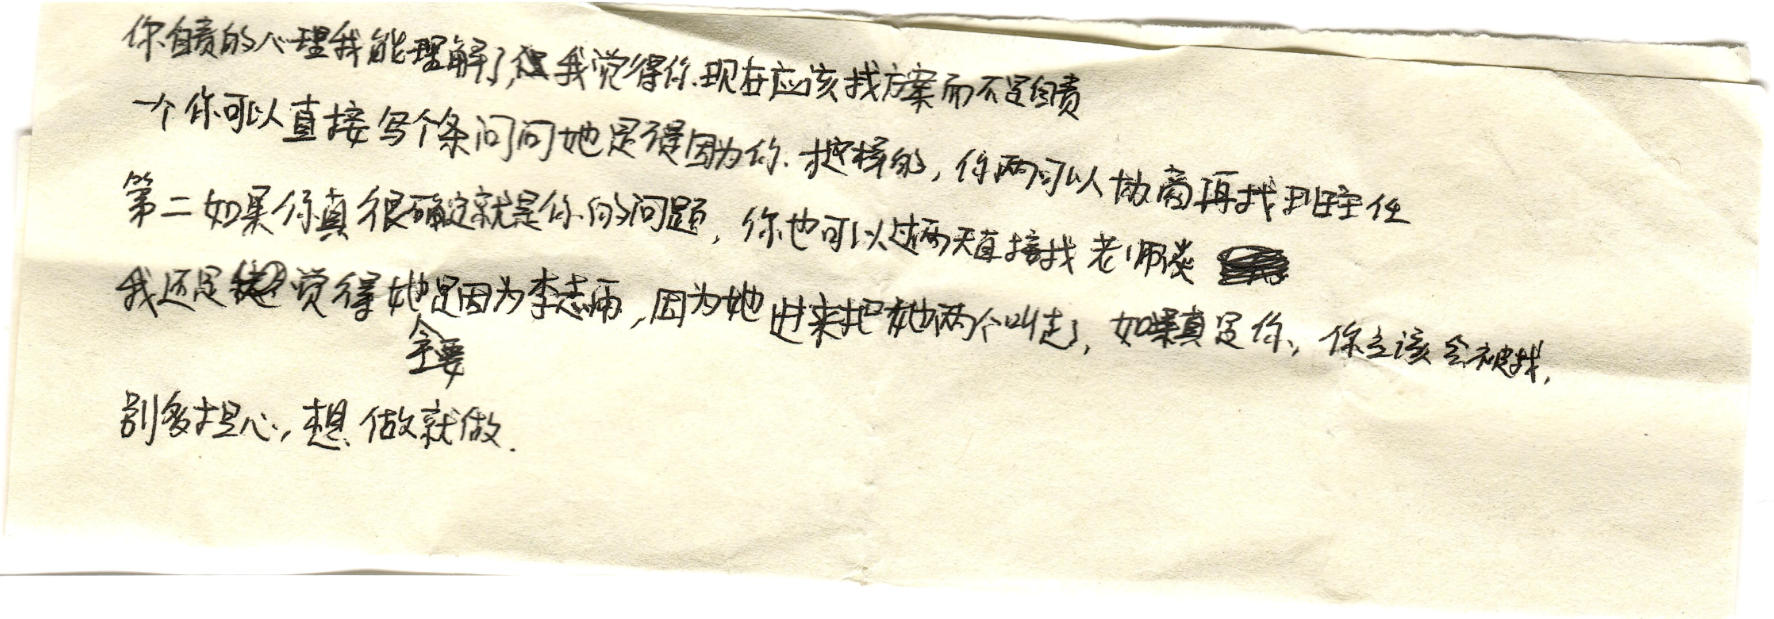 你自责的心理我能理解了,但我觉得你.现在应该找方案而不是自责
一个你可以直接写个条问问她是不是因为你.换择的,你两可以协商再找班主任
第二如果你真很确定就是你的问题,你也可以过两天直接找老师谈
我还是觉得她是因为李志雨,因为她进来把她俩两个叫走了,如果真是你,你应该会被找,
主要
别多担心,想做就做.